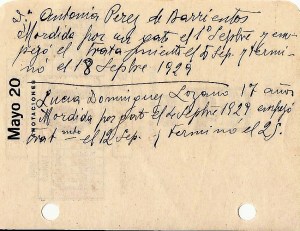 Sra Antonia Perez de Barrientos
Mordida por un gato el 1º Septbre y em-
pezó el tratamiento el Sep. y termi-
nó el 18 Septbre 1929
Lucia Dominguez Lozano 17 años
Mordida por gato el 4 Septbre 1929 empezó
trat mto el 12 Sep. y terminó el 25.
Mayo 20
ANOTACIONES